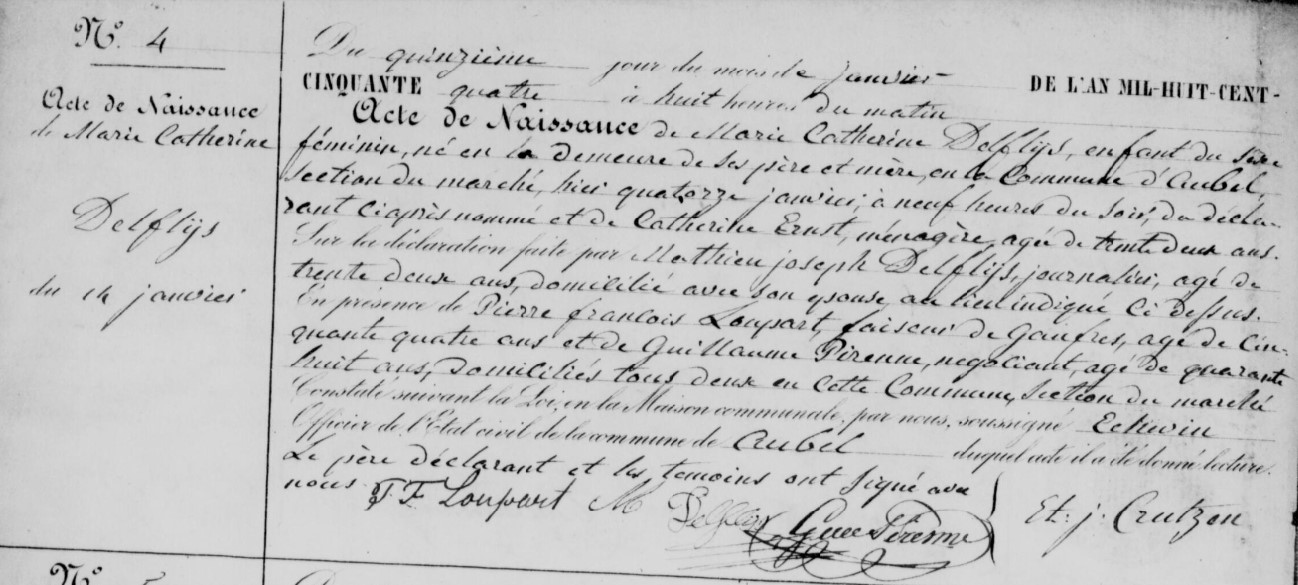 N° 4
Acte de Naissance
de Marie Catherine
Delflijs
du 14 janvier
Du quinzième jour du mois de janvier DE L'AN MIL-HUIT-CENT-
CINQUANTE quatre à huit heures du matin
Acte de Naissance de Marie Catherine Delflijs, enfant du sexe
féminin, né en la demeure de ses père et mère, en la Commune d'Aubel,
section du marché, hier quatorze janvier, à neuf heures du soir, du décla-
rant ciaprès nommé et de Catherine Ernst, ménagère, agée de trente deux ans.
Sur la déclaration faite par Mathieu joseph Delflijs, journalier, agé de
trente deux ans, domicilié avec son epouse au lieu indiqué ci dessus.
En présence de Pierre françois Loupart, faiseur de gaufres, agé de cin-
quante quatre ans et de Guillaume Pirenne, negociant, agé de quarante
huit ans, domiciliés tous deux en cette Commune, Section du marché
Constaté suivant la Loi, en la Maison communale, par nous, soussigné Echevin
Officier de l'Etat civil de la commune de Aubel duquel acte il a été donné lecture.
Le père déclarant et les temoins ont signé avec
nous.
P. F. Loupart M Delflijs Guee Pirenne Et. j. Crutzen
N° 5